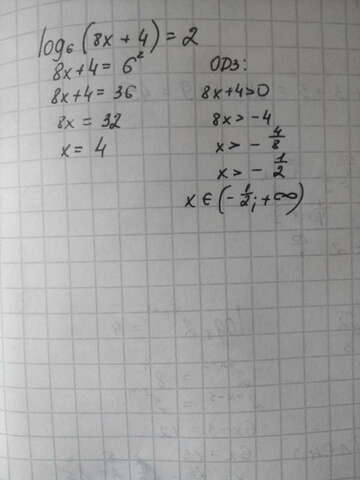 log₆(8x + 4) = 2
8x + 4 = 6²
8x + 4 = 36
8x = 32
x = 4
ОДЗ:
8x + 4 > 0
8x > -4
x > - 4/8
x > - 1/2
x ∈ (- 1/2; +∞)